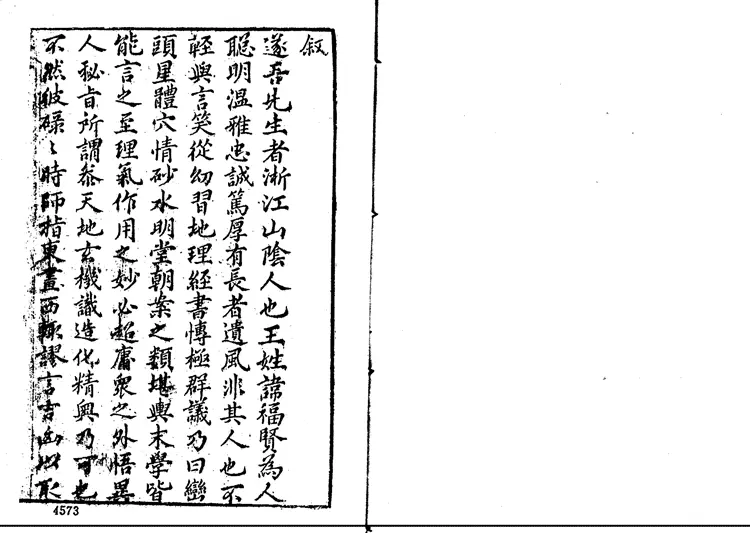 叙
遂吾先生者淅江山陰人也王姓諱福賢為人
聰明溫雅忠誠篤厚有長者遺風非其人也不
輕與言笑從幼習地理經書博極群議乃曰巒
頭星體穴情砂水明堂朝案之類堪輿末學皆
能言之至理氣作用之妙必超庸衆之外悟異
人秘旨所謂叅天地玄機識造化精興乃可也
不然彼碌〻時師指東畫西輙謬言吉凶以取
4573